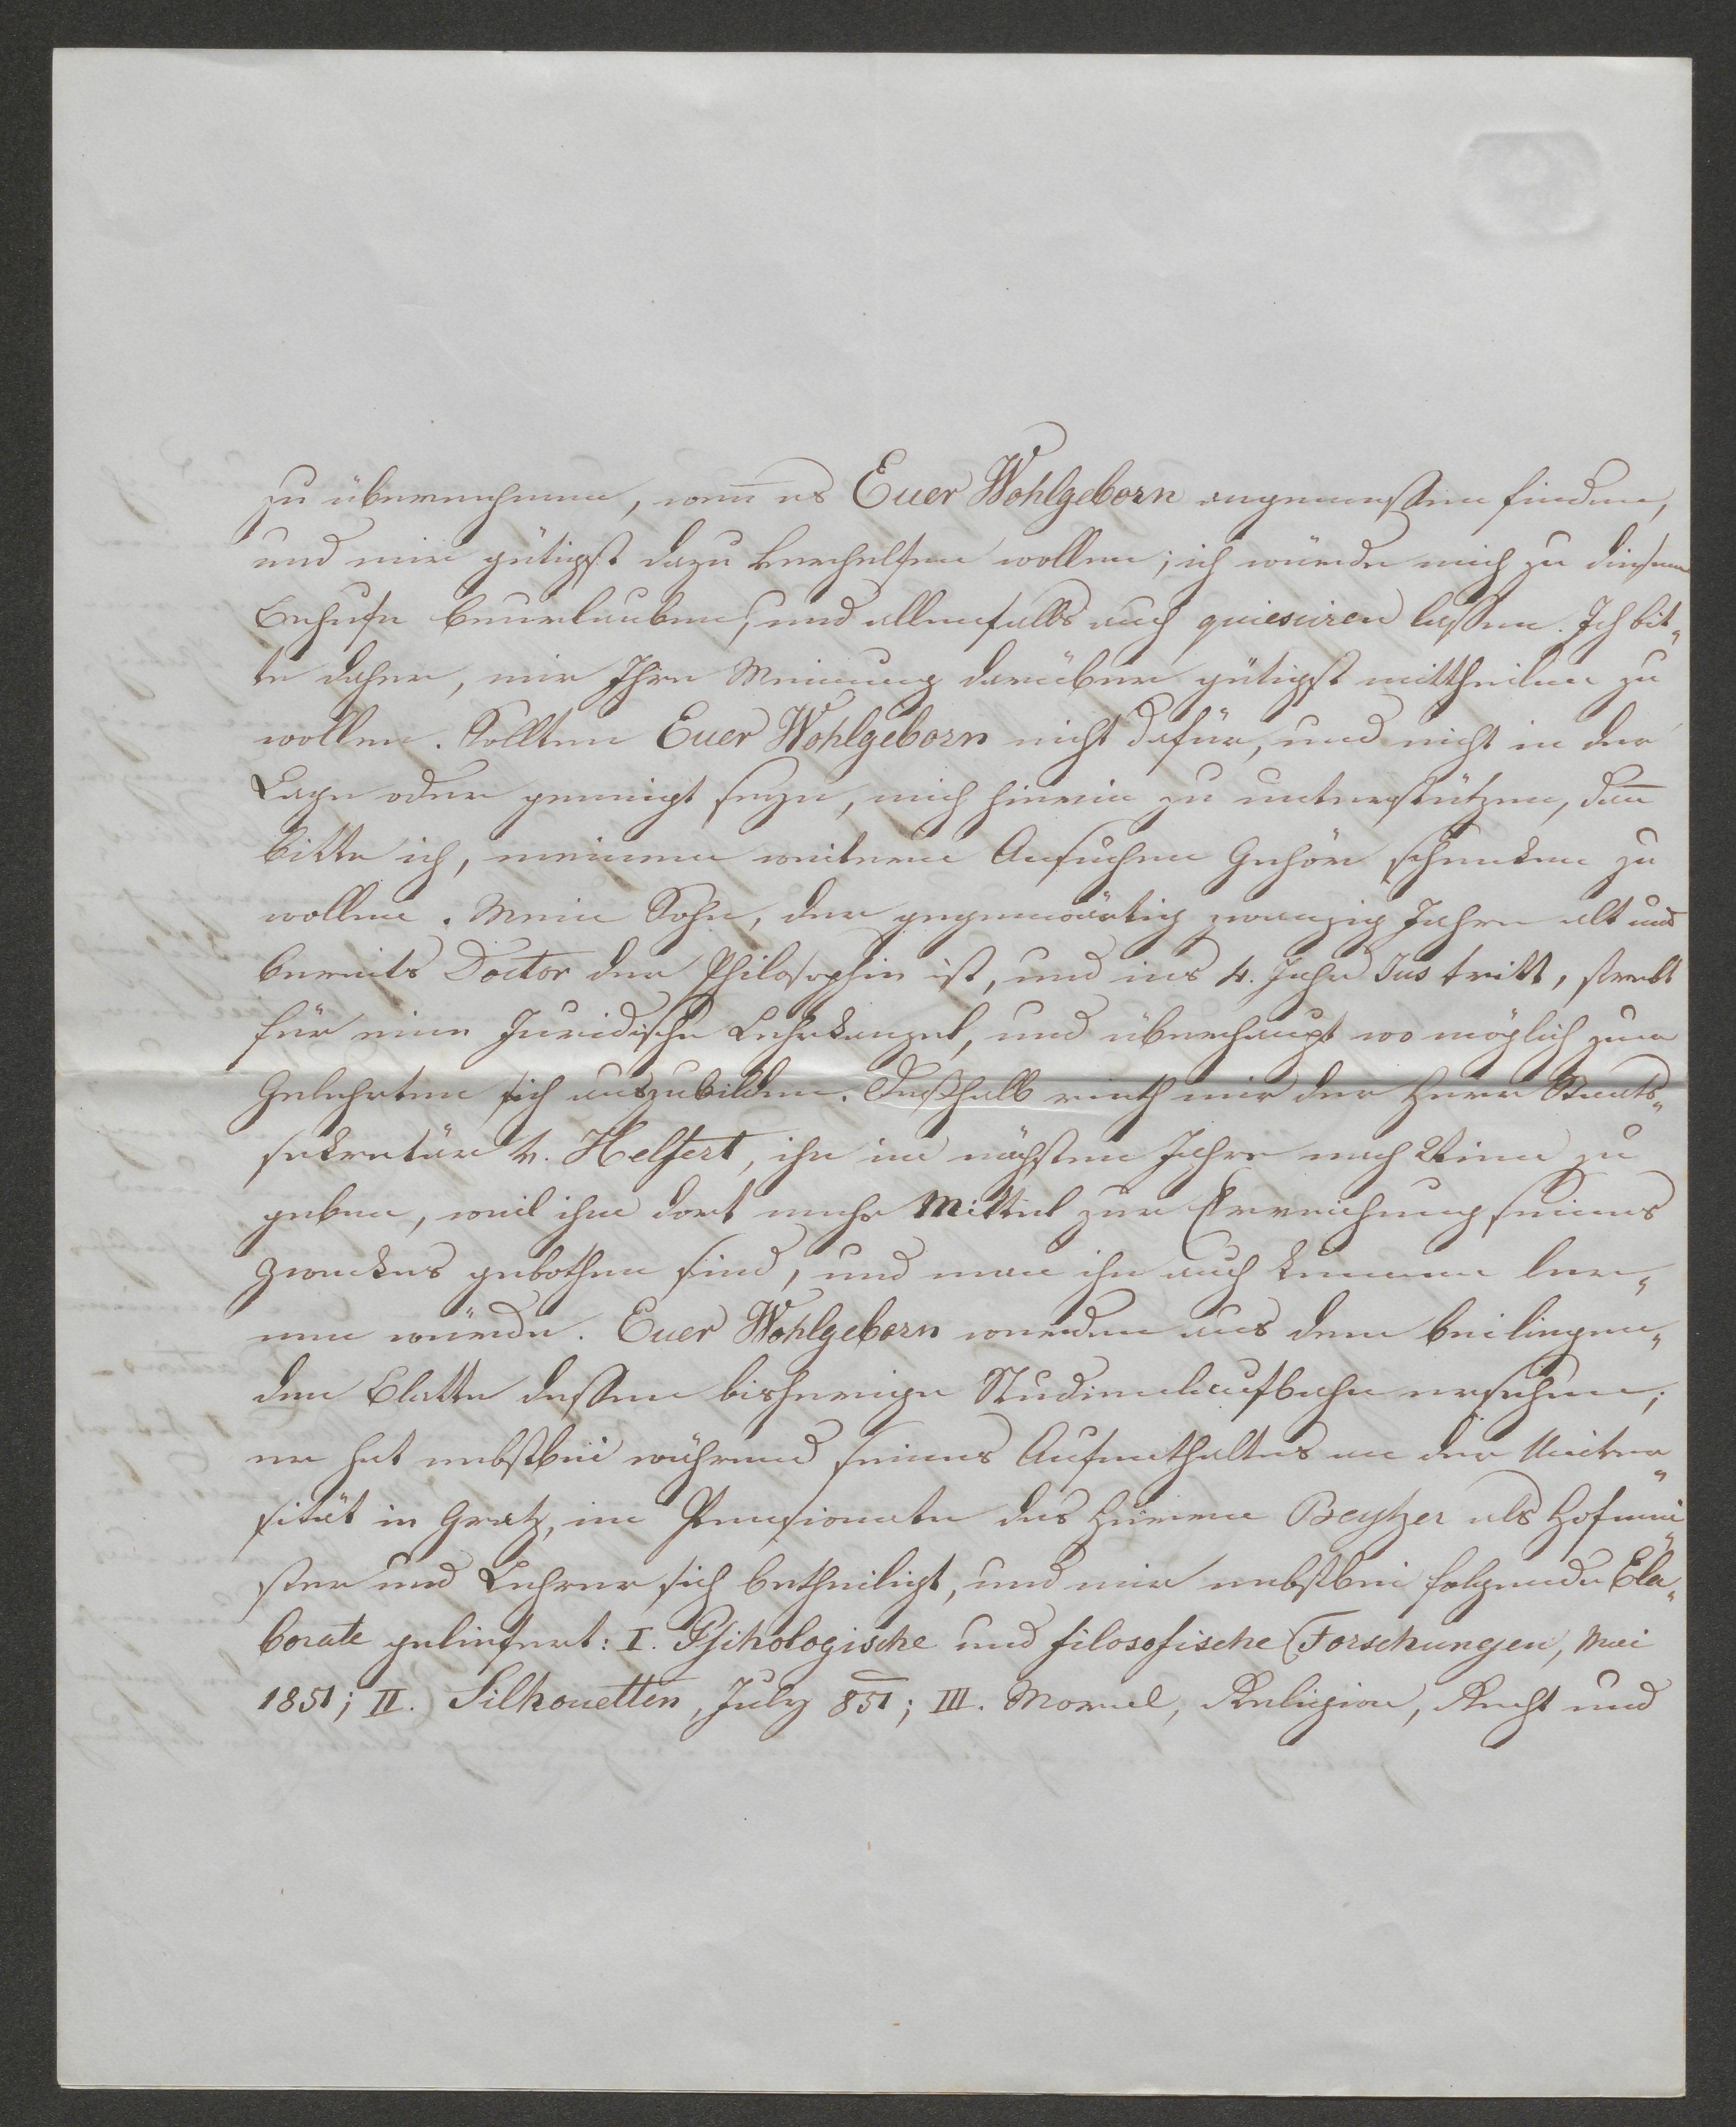 zu übernehmen, wen̅ es Euer Wohlgeborn angemessen finden,
und mir gütigst dazu verhelfen wollen; ich würde mich zu diesem
Behufe beurlauben, und allenfalls auch quiesciren lassen. Ich bit„
te daher, mir Ihre Meinung darüber gütigst mittheilen zu
wollen. Sollten Euer Wohlgeborn nicht dafür, und nicht in der
Lage oder geneigt seyn, mich hierin zu unterstützen, dan̅
bitte ich, meinem weitern Ansuchen Gehör schenken zu
wollen. Mein Sohn, der gegenwärtig zwanzig Jahre alt und
bereits Doctor der Philosophie ist, und ins 4. Jahr Jus tritt, strebt
für eine Juridische Lehrkanzel, und überhaupt wo möglich zum
Gelehrten sich auszubilden. Deßhalb rieth mir der Herr Staats„
sekretär v. Helfert, ihn im nächsten Jahre nach Wien zu
geben, weil ihm dort mehr Mittel zur Erreichung seines
Zweckes gebothen sind, und man ihn auch kennen ler„
nen würde. Euer Wohlgeborn werden aus dem beiliegen„
den Blatte dessen bisherige Studienlaufbahn ersehen;
er hat nebstbei während seines Aufenthaltes an der Univer„
sität in Gratz, im Pensionate des Herrn Beytzer als Hofmei„
ster und Lehrer sich betheiligt, und mir nebstbei folgende Ela„
borate geliefert: I. Psihologische und filosofische Forschungen, Mai
1851; II. Silhouetten, July 851; III. Moral, Religion, Recht und